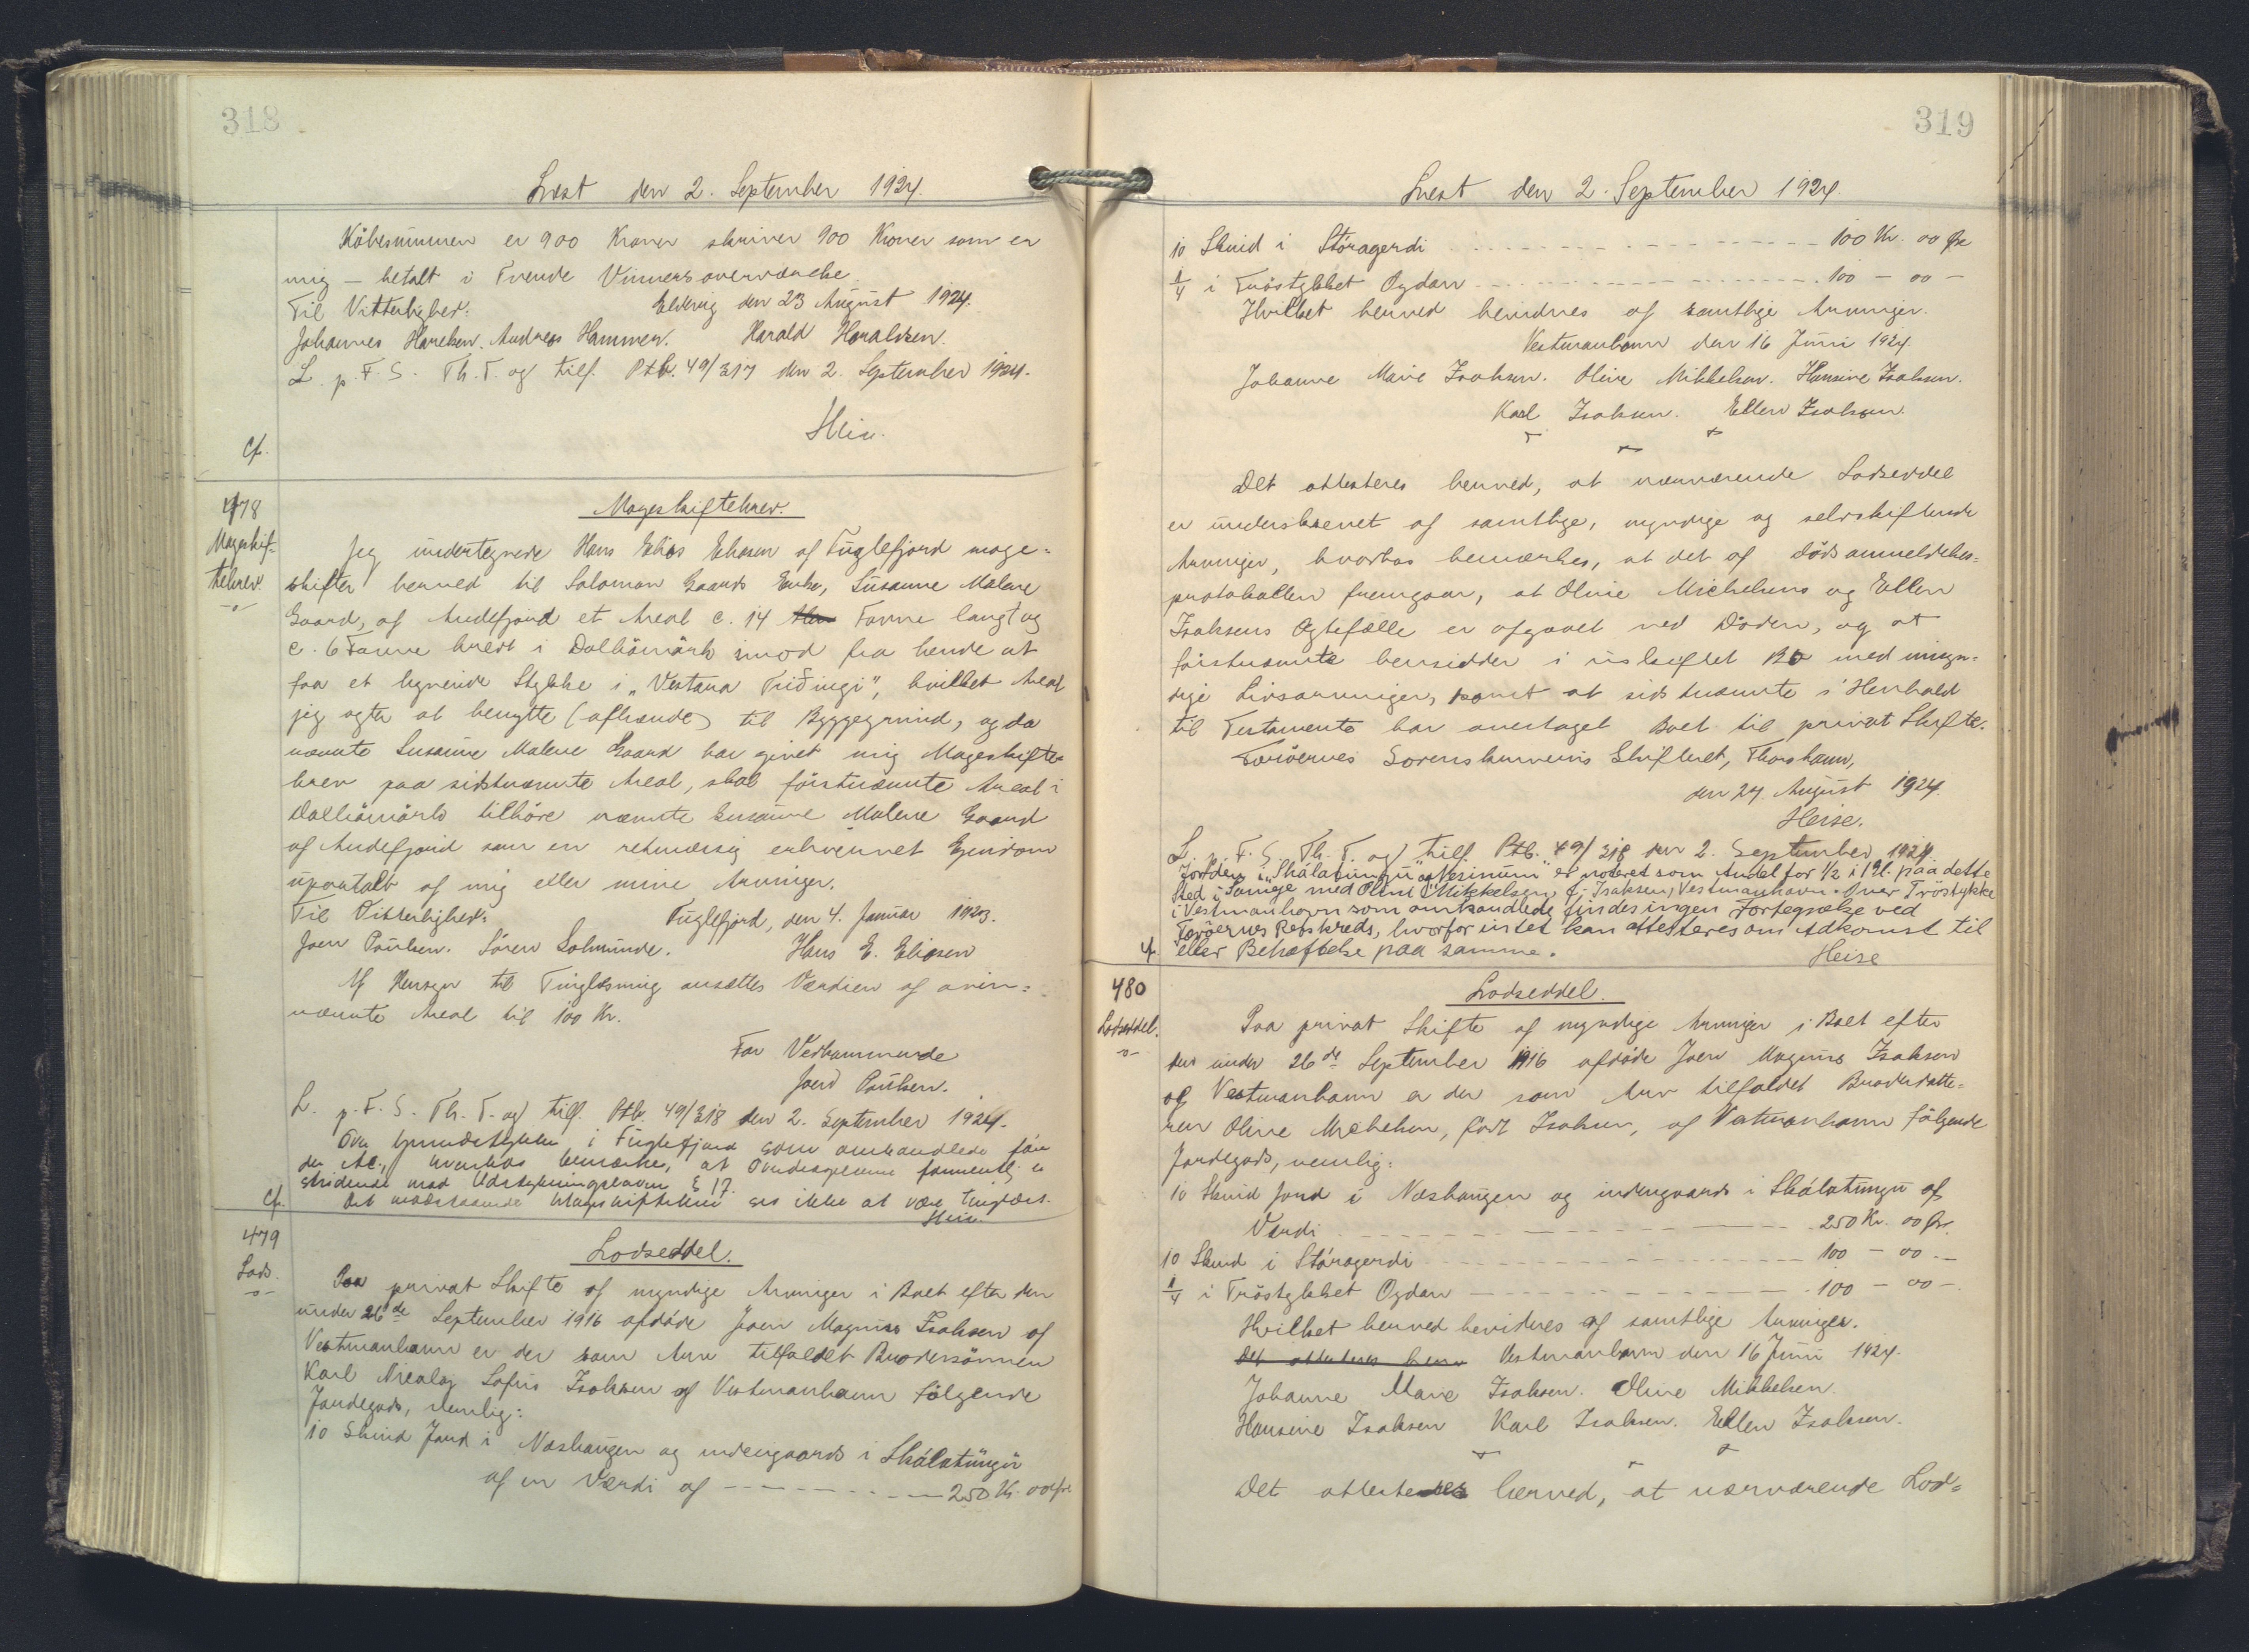 318
Læst den 2. September 1924.
Köbesummen er 900 Kroner skriver 900 Kroner som er
mig — betalt i Tvende Vinners overværelse
Til Vitterlighed: Eldevig den 23 August 1924.
Johannes Hansen. Andreas Hammer. Harald Haraldsen.
L. p. F. S. Th. T. og tilf. Ptb. 49/317 den 2. September 1924.
Heise.
Cf.
478
Mageskif-
tebrev.
Mageskiftebrev.
Jeg undertegnede Hans Elias Eliasen af Fuglefjord mage-
skifter herved til Salomon Gaards Enke, Susanne Malene
Gaard, af Andefjord et Areal c. 14 Favne langt og
c. 6 Favne bredt i Dalhámörk imod fra hende at
faa et lignende Stykke i „Vestara Triðingi", hvilket Areal
jeg agter at benytte (afhænde) til Byggegrund, og da
nævnte Susanne Malene Gaard har givet mig Mageskifte-
brev paa sidstnævnte Areal, skal förstnævnte Areal i
Dalhámörk tilhöre nævnte Susanne Malene Gaard
af Andefjord som en retmæssig erhvervet Ejendom
upaatalt af mig eller mine Arvinger.
Til Vitterlighed: Fuglefjord, den 4. Januar 1923.
Joen Poulsen. Sören Solmunde. Hans E. Eliasen
Af Hensyn til Tinglæsning ansættes Værdien af oven-
nævnte Areal til 100 Kr.
For Vedkommende
Joen Poulsen.
L. p. F. S. Th. T. og tilf. Ptb. 49/318 den 2. September 1924.
Over Grundstykket i Fuglefjord som omhandlede fin
des Ad., hvorhos bemærkes, at Overdragelsen formentlig er
stridende mod Udstykningsloven § 17.
Cf. Det modstaaende Mageskiftebrev ses ikke at være tinglæst.
Heise
479
Lods.
Lodseddel.
Paa privat Skifte af myndige Arvinger i Boet efter den
under 26de September 1916 afdöde Joen Magnus Isaksen af
Vestmanhavn er der som Arv tilfaldet Brodersönnen
Karl Nicolaj Sofus Isaksen af Vestmanhavn fölgende
Jordegods, nemlig:
10 Skind Jord i Næshaugen og indengaards i Skálatúngu
af en Værdi af — 250 Kr. 00 Öre
319
Læst den 2. September 1924.
10 Skind i Stóragerdi 100 Kr. 00 Öre
1/4 i Tröstykket Ogdan 100 — 00 —
Hvilket herved bevidnes af samtlige Arvinger.
Vestmanhavn den 16 Juni 1924.
Johanne Marie Isaksen. Oline Mikkelsen. Hansine Isaksen.
Karl Isaksen. Ellen Isaksen.
Det attesteres herved, at nærværende Lodseddel
er underskrevet af samtlige, myndige og selvskiftende
Arvinger, hvorhos bemærkes, at det af Dödsanmeldelses-
protokollen fremgaar, at Oline Michelsens og Ellen
Isaksens Ægtefælle er afgaaet ved Döden, og at
förstnævnte hensidder i uskiftet Bo med umyn-
dige Livsarvinger, samt at sidstnævnte i Henhold
til Testamente har overtaget Boet til privat Skifte.
Færöernes Sorenskriveris Skifteret, Thorshavn,
den 27. August 1924.
Heise.
L. p. F. S. Th. T. og tilf. Ptb. 49/318 den 2. September 1924.
Jorden i „Skálatungu" og „Nesinum" er noteret som Andel for 1/2 i 1 Gl. paa dette
Sted i Sameje med Oline Mikkelsen f. Isaksen, Vestmanhavn. Over Tröstykke
i Vestmanhavn som omhandlede findes ingen Fortegnelse ved
Færöernes Retskreds, hvorfor intet kan attesteres om Adkomst til
Cf. eller Behæftelse paa samme. Heise
480
Lodseddel.
Lodseddel.
Paa privat Skifte af myndige Arvinger i Boet efter
den under 26de September 1916 afdöde Joen Magnus Isaksen
af Vestmanhavn er der som Arv tilfaldet Broderdatte-
ren Oline Michelsen, född Isaksen, af Vestmanhavn fölgende
Jordegods, nemlig:
10 Skind Jord i Næshaugen og indengaards i Skálatungu af
Værdi 250 Kr. 00 Öre.
10 Skind i Stóragerdi 100 — 00 —
1/4 i Tröstykket Ogdan 100 — 00 —
Hvilket herved bevidnes af samtlige Arvinger.
Det attesteres herv Vestmanhavn den 16 Juni 1924.
Johanne Marie Isaksen. Oline Mikkelsen.
Hansine Isaksen Karl Isaksen. Ellen Isaksen.
Det attesteres herved, at nærværende Lod-